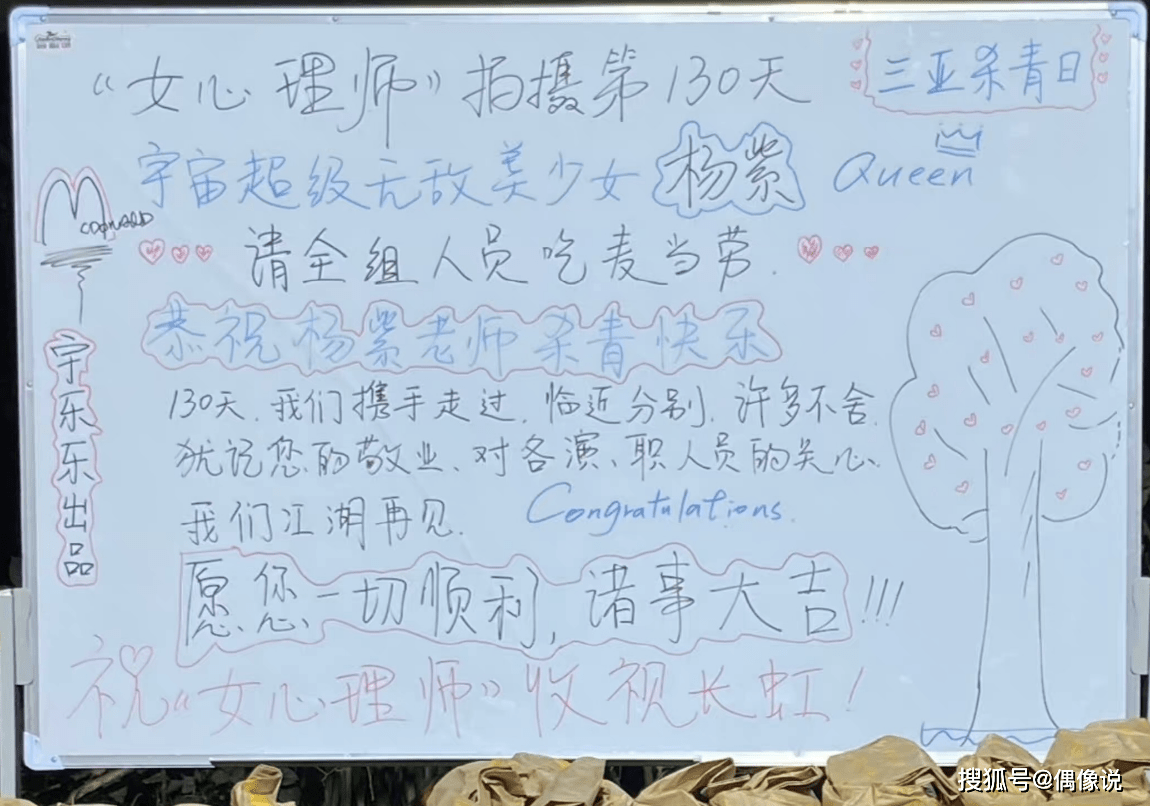 “女心理师”拍摄第130天
三亚杀青日
宇宙超级无敌美少女杨紫 Queen
请全组人员吃麦当劳.
恭祝杨紫老师杀青快乐
130天.我们携手走过.临近分别.许多不舍.
犹记您的敬业、对各演、职人员的关心.
我们江湖再见.
Congratulations.
愿您一切顺利,诸事大吉!!!
祝“女心理师”收视长虹!
宇乐乐出品
搜狐号@偶像说